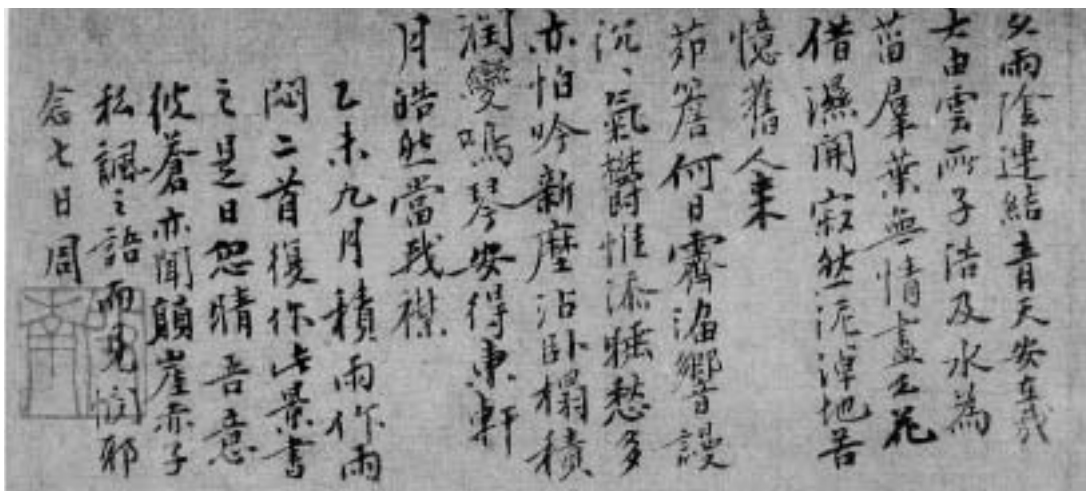 久雨陰連結青天安在哉
大由雲所子浩及水為
菑羣葉無情盡土花
借濕開寂然泥濘地苦
憶舊人来
茆簷何日霽滔響謾
沉〻氣欝惟添睡愁多
亦怕吟新塵沾卧榻積
潤變鳴琴安得東軒
月皓然當我襟
乙未九月積雨作雨
悶二首復作此景書
之是日忽晴吾意
彼蒼亦聞顛崖赤子
私諷之語而見憫耶
念七日周